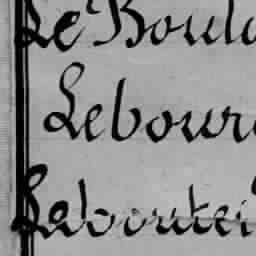 Le Boulu
Lebour
Leboutei